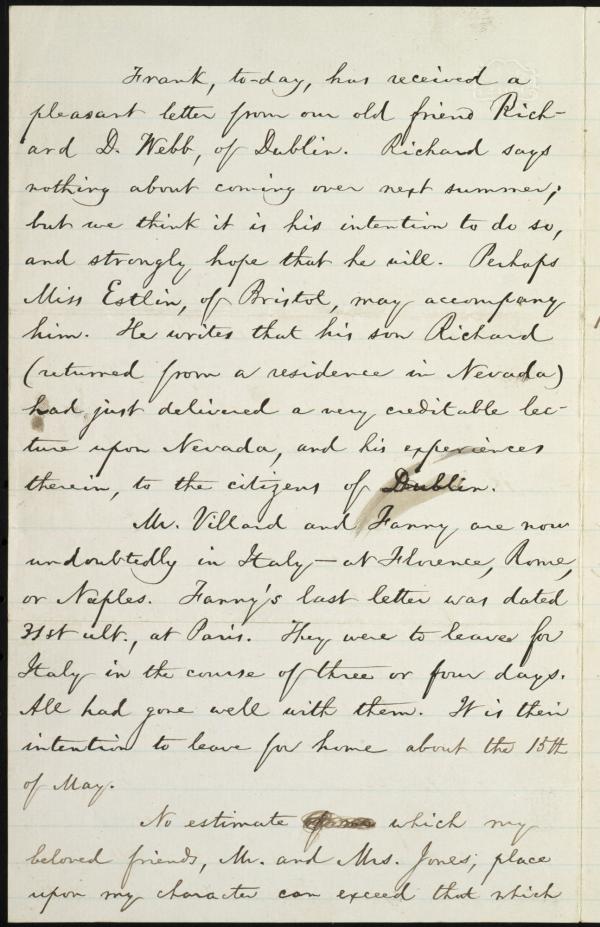 Frank, to-day, has received a
pleasant letter from our old friend Rich-
ard D. Webb, of Dublin. Richard says
nothing about coming over next summer;
but we think it is his intention to do so,
and strongly hope that he will. Perhaps
Miss Estlin, of Bristol, may accompany
him. He writes that his son Richard
(returned from a residence in Nevada)
had just delivered a very creditable lec-
ture upon Nevada, and his experiences
therein, to the citizens of Dublin.
Mr. Villard and Fanny are now
undoubtedly in Italy — at Florence, Rome,
or Naples. Fanny's last letter was dated
31st ult., at Paris. They were to leave for
Italy in the course of three or four days.
All had gone well with them. It is their
intention to leave for home about the 15th
of May.
No estimate which my
beloved friends, Mr. and Mrs. Jones, place
upon my character can exceed that which